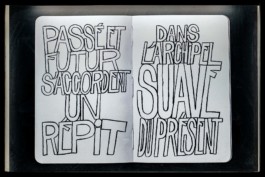 PASSÉ ET
FUTUR
S'ACCORDENT
UN
RÉPiT
DANS
L'ARCHIPEL
SUAVE
DU PRÉSENT